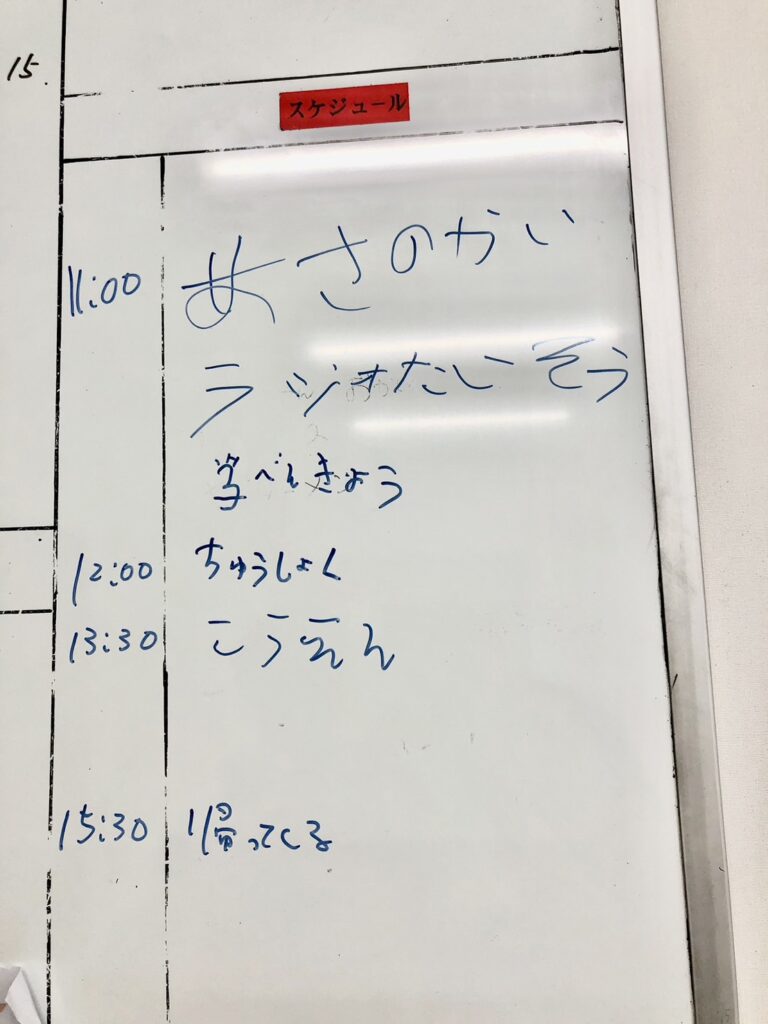 15.
スケジュール
11:00 あさのかい
ラジオたいそう
学べんきょう
12:00 ちゅうしょく
13:30 こうえん
15:30 帰ってくる